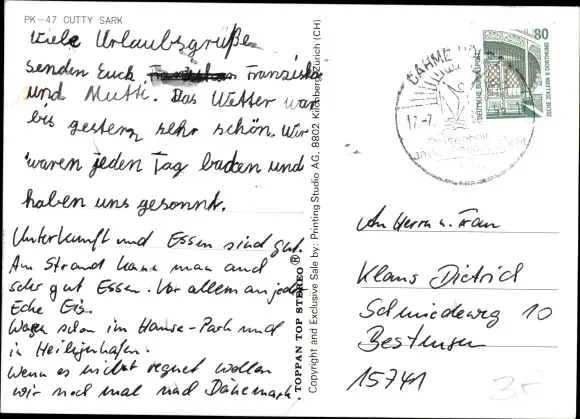 PK-47 CUTTY SARK
Viele Urlaubsgrüße
senden Euch Franziska
und Mutti. Das Wetter war
bis gestern sehr schön. Wir
waren jeden Tag baden und
haben uns gesonnt.
Unterkunft und Essen sind gut.
Am Strand kann man auch
sehr gut Essen. Vor allem an jeder
Ecke Eis.
Waren schon im Hanse-Park und
in Heiligenhafen.
Wenn es nicht regnet wollen
wir noch mal nach Dänemark.
TOPPAN TOP STEREO®
Copyright and Exclusive Sale by: Printing Studio AG, 8802 Kilchberg/Zürich (CH)
DAHME
17.-7.
80
DEUTSCHE BUNDESPOST
ZECHE ZOLLERN II DORTMUND
An Herrn u. Frau
Klaus Dietrich
Schmiedeweg 10
Bestensee
15741
3,-